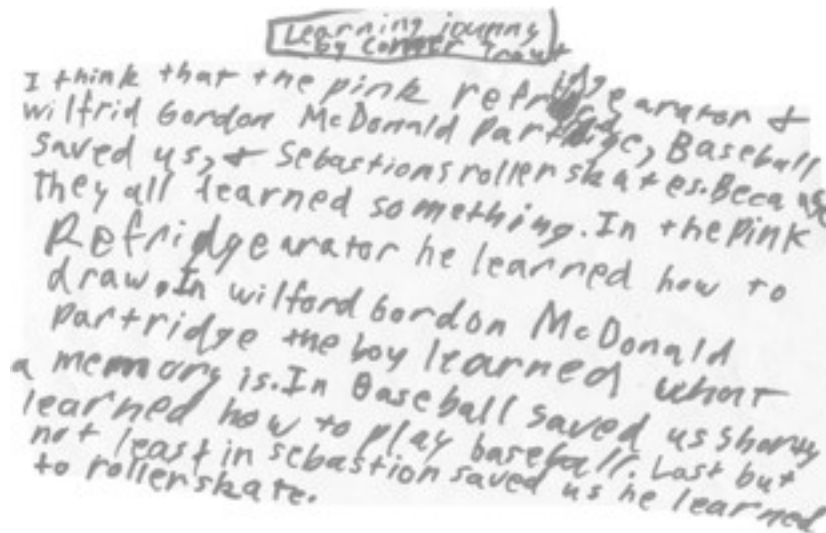 Learning journy
by Conner Trout
I think that the pink refridgearator &
wilfrid Gordon McDonald Partridge, Baseball
saved us, & Sebastions roller skates. Because
they all learned something. In the pink
Refridgearator he learned how to
draw. In wilford Gordon McDonald
partridge the boy learned what
a memory is. In Baseball saved us shorty
learned how to play baseball. Last but
not least in sebastion saved us he learned
to rollerskate.